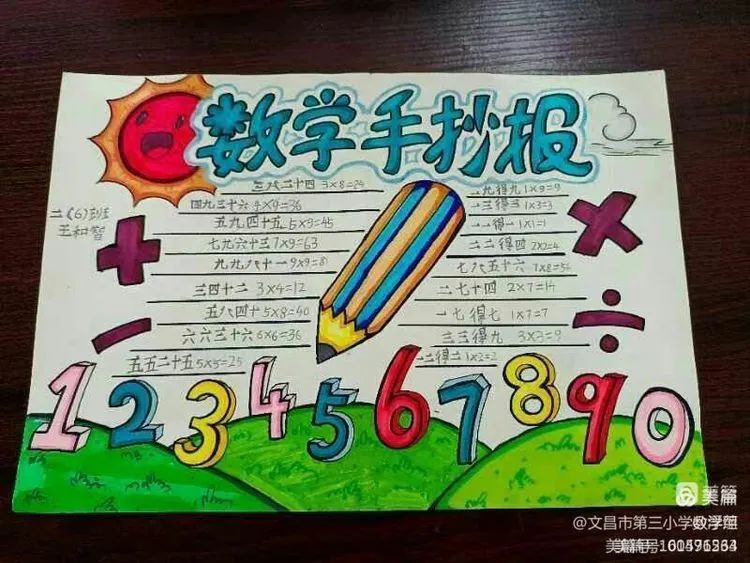 数学手抄报
二(6)班
王和智
三八二十四 3×8=24
四九三十六 4×9=36
五九四十五 5×9=45
七九六十三 7×9=63
九九八十一 9×9=81
三四十二 3×4=12
五八四十 5×8=40
六六三十六 6×6=36
五五二十五 5×5=25
一九得九 1×9=9
一三得三 1×3=3
一一得一 1×1=1
二二得四 2×2=4
七八五十六 7×8=56
二七十四 2×7=14
一七得七 1×7=7
三三得九 3×3=9
一二得二 1×2=2
+
×
−
÷
1 2 3 4 5 6 7 8 9 0
美篇
@文昌市第三小学数学组
美篇号: